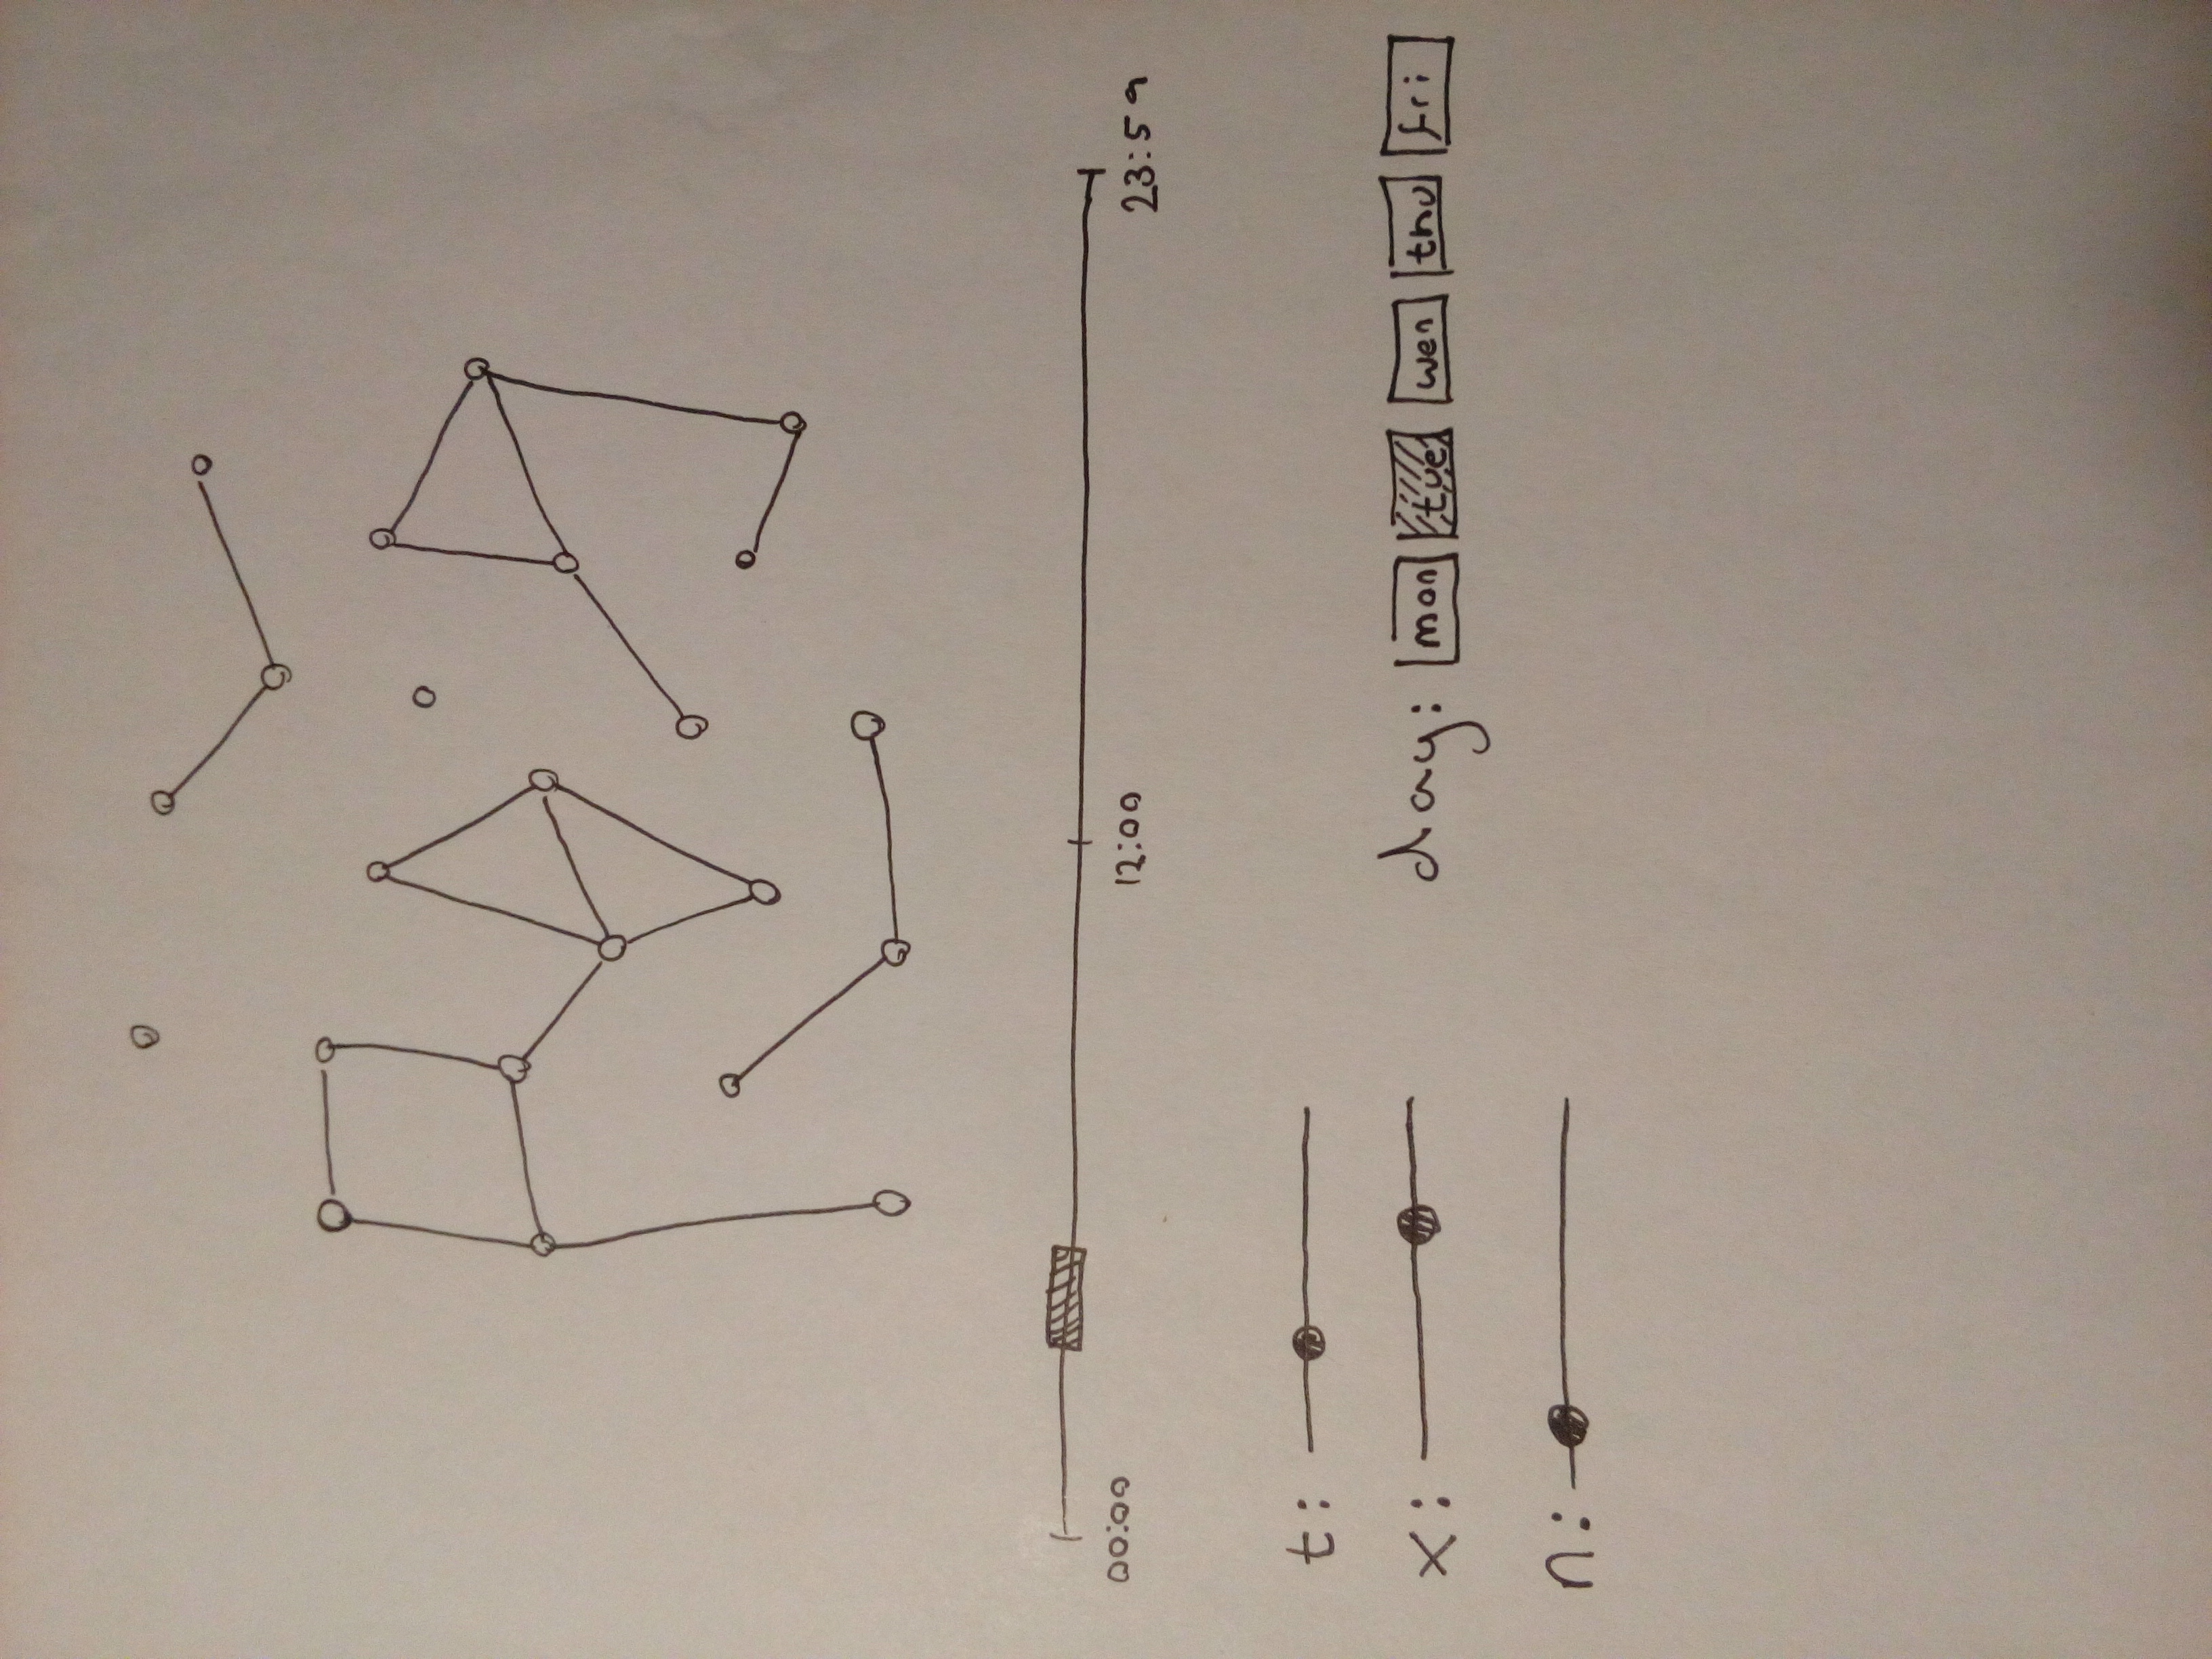 00:00 12:00 23:59
t:
x:
n:
day: mon tue wen thu fri